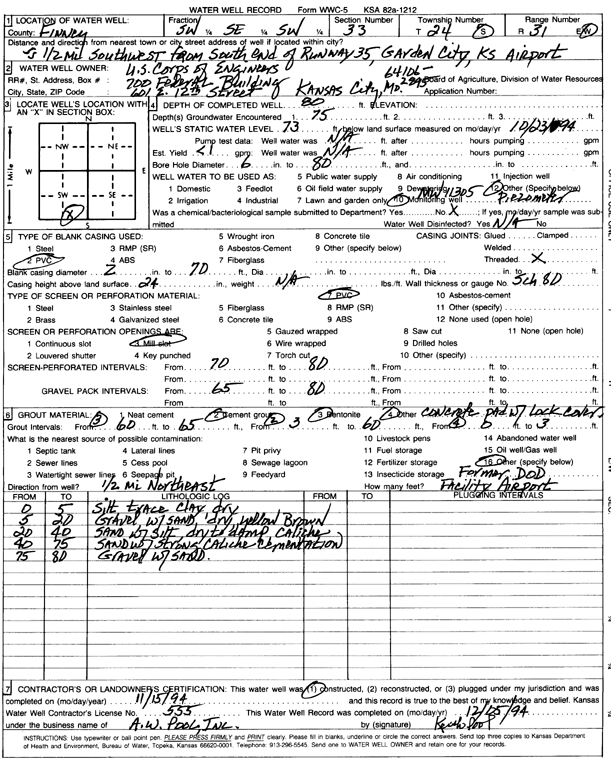 WATER WELL RECORD Form WWC-5 KSA 82a-1212
1 LOCATION OF WATER WELL: Fraction Section Number Township Number Range Number
County: Finney SW ¼ SE ¼ SW ¼ 33 T 24 S R 31 E/W
Distance and direction from nearest town or city street address of well if located within city?
1/2 mil Southwest from South End of Runway 35, Garden City, Ks Airport
2 WATER WELL OWNER: U.S. Corps of Engineers
RR#, St. Address, Box # : 700 Federal Building 64106- Board of Agriculture, Division of Water Resources
City, State, ZIP Code : 601 E. 12th Street Kansas City, Mo. Application Number:
3 LOCATE WELL'S LOCATION WITH AN "X" IN SECTION BOX:
N
NW NE
W E
SW SE
S
1 Mile
4 DEPTH OF COMPLETED WELL 80 ft. ELEVATION:
Depth(s) Groundwater Encountered 1. 75 ft. 2. ft. 3. ft.
WELL'S STATIC WATER LEVEL 73 ft. below land surface measured on mo/day/yr 10/23/94
Pump test data: Well water was N/A ft. after hours pumping gpm
Est. Yield <1 gpm: Well water was N/A ft. after hours pumping gpm
Bore Hole Diameter 6 in. to 80 ft., and in. to ft.
WELL WATER TO BE USED AS: 5 Public water supply 8 Air conditioning 11 Injection well
1 Domestic 3 Feedlot 6 Oil field water supply 9 Dewatering 12 Other (Specify below)
2 Irrigation 4 Industrial 7 Lawn and garden only 10 Monitoring well Piezometer
Was a chemical/bacteriological sample submitted to Department? Yes No X ; If yes, mo/day/yr sample was submitted
Water Well Disinfected? Yes N/A No
5 TYPE OF BLANK CASING USED: 5 Wrought iron 8 Concrete tile CASING JOINTS: Glued Clamped
1 Steel 3 RMP (SR) 6 Asbestos-Cement 9 Other (specify below) Welded
2 PVC 4 ABS 7 Fiberglass Threaded X
Blank casing diameter 2 in. to 70 ft., Dia in. to ft., Dia in. to ft.
Casing height above land surface 24 in., weight N/A lbs./ft. Wall thickness or gauge No. Sch 80
TYPE OF SCREEN OR PERFORATION MATERIAL: 7 PVC 10 Asbestos-cement
1 Steel 3 Stainless steel 5 Fiberglass 8 RMP (SR) 11 Other (specify)
2 Brass 4 Galvanized steel 6 Concrete tile 9 ABS 12 None used (open hole)
SCREEN OR PERFORATION OPENINGS ARE: 5 Gauzed wrapped 8 Saw cut 11 None (open hole)
1 Continuous slot 3 Mill slot 6 Wire wrapped 9 Drilled holes
2 Louvered shutter 4 Key punched 7 Torch cut 10 Other (specify)
SCREEN-PERFORATED INTERVALS: From 70 ft. to 80 ft., From ft. to ft.
From ft. to ft., From ft. to ft.
GRAVEL PACK INTERVALS: From 65 ft. to 80 ft., From ft. to ft.
From ft. to ft., From ft. to ft.
6 GROUT MATERIAL: 1 Neat cement 2 Cement grout 3 Bentonite 4 Other Concrete pad w/ Lock Cover
Grout Intervals: From 60 ft. to 65 ft., From 3 ft. to 60 ft., From 0 ft. to 3 ft.
What is the nearest source of possible contamination: 10 Livestock pens 14 Abandoned water well
1 Septic tank 4 Lateral lines 7 Pit privy 11 Fuel storage 15 Oil well/Gas well
2 Sewer lines 5 Cess pool 8 Sewage lagoon 12 Fertilizer storage 16 Other (specify below)
3 Watertight sewer lines 6 Seepage pit 9 Feedyard 13 Insecticide storage Former DOD
Direction from well? 1/2 Mil Northeast How many feet? Facility Airport
FROM TO LITHOLOGIC LOG FROM TO PLUGGING INTERVALS
0 5 Silt trace Clay, dry
5 20 Gravel w/ SAND, dry, yellow Brown
20 40 SAND w/ Silt, dry to damp, Caliche
40 75 SAND w/ Strong Caliche Cementation
75 80 Gravel w/ SAND.
7 CONTRACTOR'S OR LANDOWNER'S CERTIFICATION: This water well was (1) constructed, (2) reconstructed, or (3) plugged under my jurisdiction and was
completed on (mo/day/year) 11/15/94 and this record is true to the best of my knowledge and belief. Kansas
Water Well Contractor's License No. 555 This Water Well Record was completed on (mo/day/yr) 12/25/94
under the business name of A.W. Pool, Inc. by (signature) Keith Pool
INSTRUCTIONS: Use typewriter or ball point pen. PLEASE PRESS FIRMLY and PRINT clearly. Please fill in blanks, underline or circle the correct answers. Send top three copies to Kansas Department
of Health and Environment, Bureau of Water, Topeka, Kansas 66620-0001. Telephone: 913-296-5545. Send one to WATER WELL OWNER and retain one for your records.